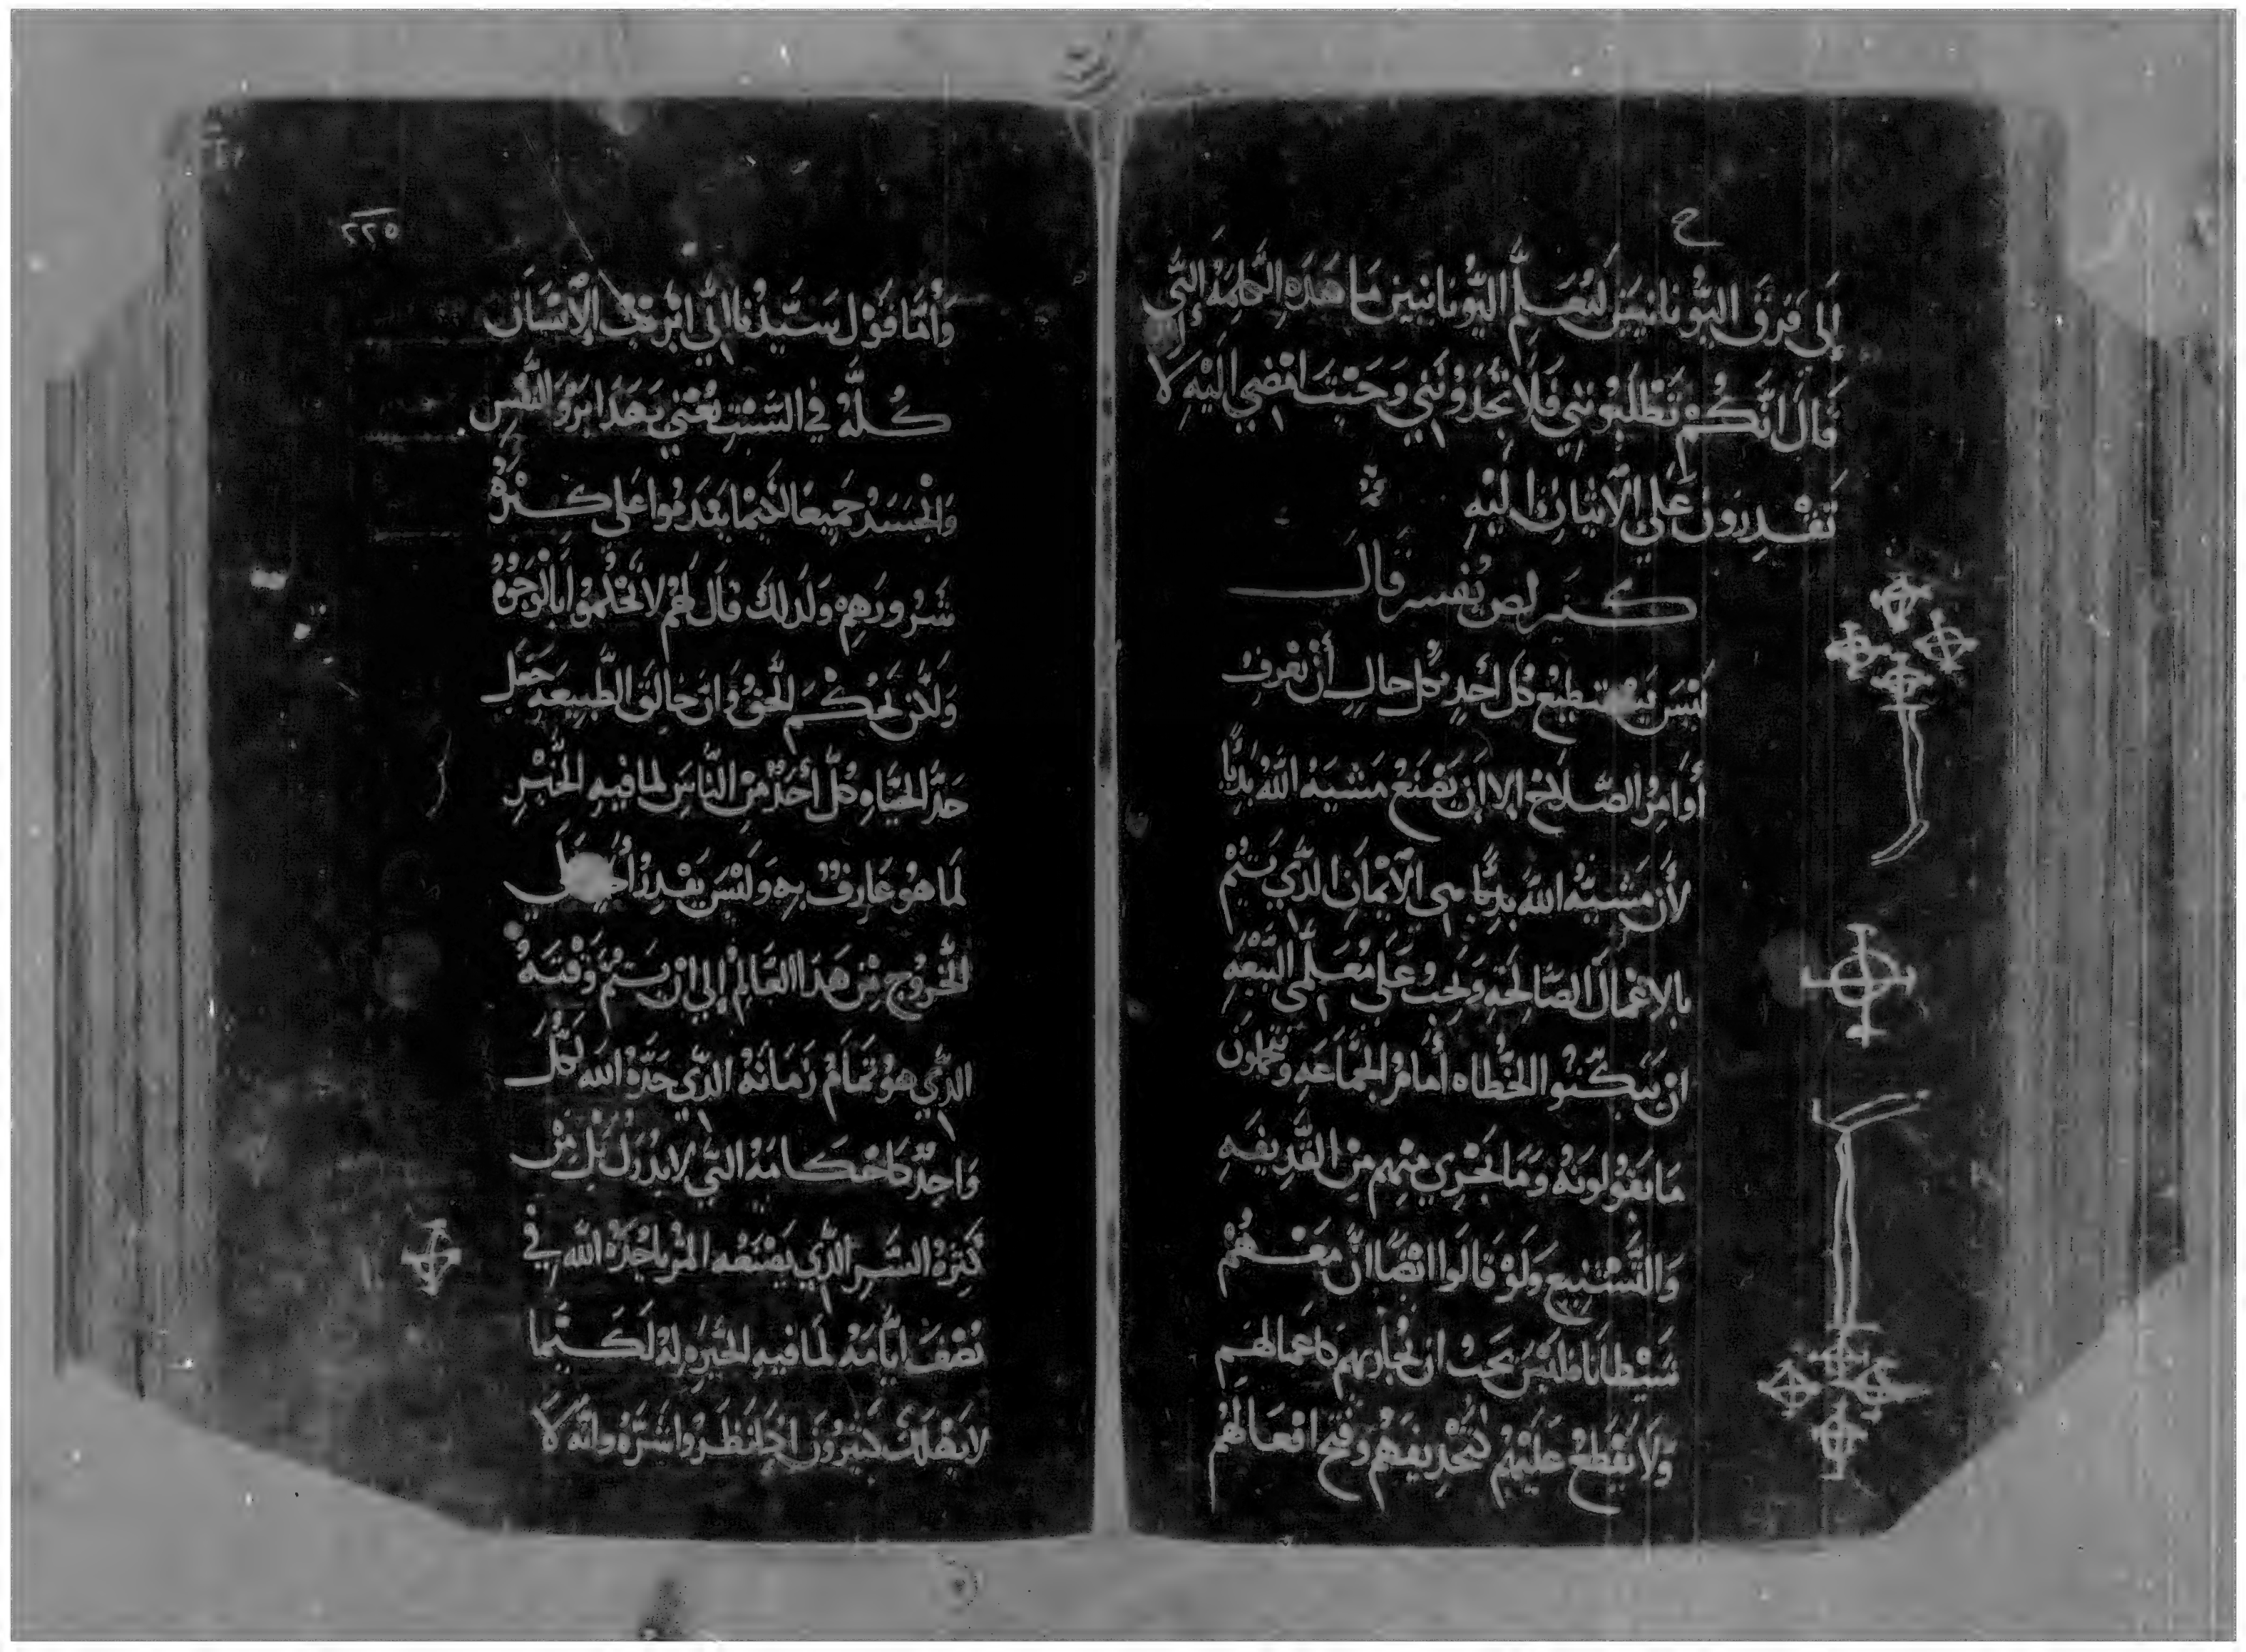 ح
إلى فرق اليونانيين ليُعَلّم اليونانيين ما هَذه الكلمة التي
قال انكُم تطلبونني فلا تجدونني وحيت امضي اليه لا
تقدرون على الاتيان اليه
كنز لص يفسر قال
ليس يستطيع كل أحدٍ بكل حالٍ أن يعرف
أوامر الصلاح إلا إن يصنع مشية الله بديًا
لأن مشيّة الله بديًا هي الايمان الذي يتم
بالاعمال الصالحه ويجب على معلمي البيعه
ان يبكتوا الخطاه أمام الجماعه ويحتملون
ما يقولونه وما يجري منهم من القديفه
والتشنيع ولو قالوا ايضًا ان معهم
شيطانا فليس يجب ان نجازيهم كاعمالهم
ولا يقطع عليهم لتجديفهم وقبح افعالهم
٢٢٥
وأما قول سيّدنا اني ابريت الإنسان
كلّه في السبت يعني بهذا ابرو النفس
والجسد جميعا لكيما يقدموا على كثرة
شرورهم ولذلك قال لهم لا تحكموا بالوجوه
ولكن بحُكم الحق وان خالق الطبيعه جعل
حدّ الحياه وكل أحد من الناس لما فيه الخير
لما هو عارفٌ به وليس يقدر أحد على
الخروج من هذا العالم إلى ان يتم وقته
الذي هو تمام زمانه الذي حدّه الله لكل
واحد كاحكامه التي لا تدرك بل من
كثرة الشر الذي يصنعه المرء ياخذه الله في
نصف ايامه لما فيه الخيره له لكيما
لا يضلك كثيرون اخر نظروا شره وانه لا